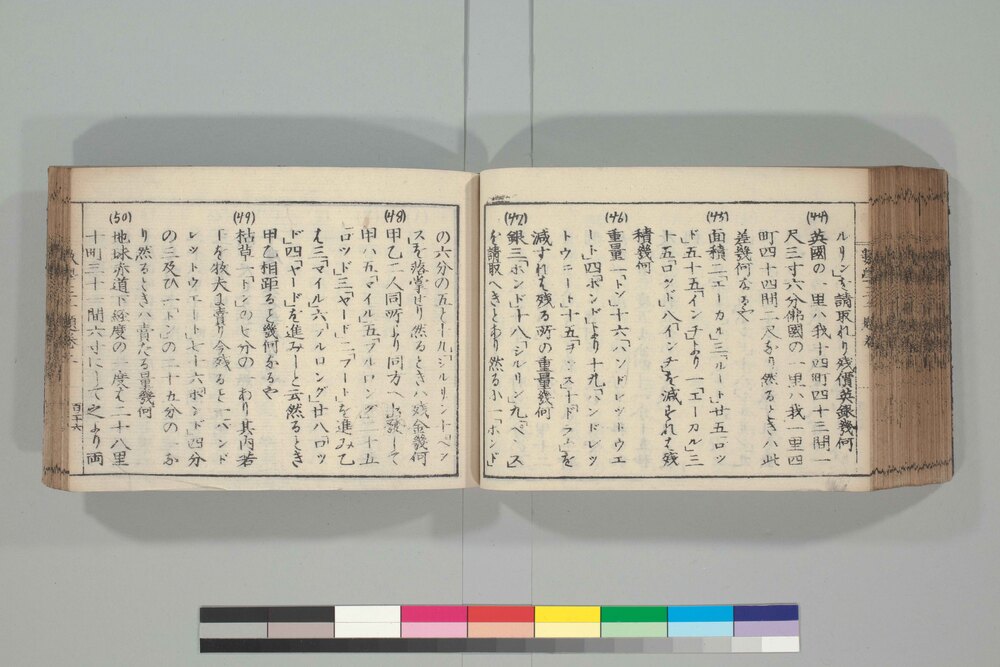 ルリン」を請取れり残價英銀幾何
(44)
英國の一里ハ我十四町四十三間一
尺三寸六分佛國の一里ハ我一里四
町四十四間二尺なり然るときハ此
差幾何なるや
(45)
面積二「エーカル」三「ルート」廿五「ロッ
ド」五十五「インチ」より一「エーカル」三
十五「ロッド」八「インチ」を減ずれば残
積幾何
(46)
重量一「トン」十六「ハンドレットウエ
ート」四「ポンド」より十九「ハンドレッ
トウエート」十五「ヲンス」十「ドラム」を
減ずれば残る所の重量幾何
(47)
銀三「ポンド」十八「シルリン」九「ペンス」
を請取へきとあり然るに一「ポンド」
の六分の五と十九「シルリン」十「ペン
ス」を落掌せり然るときハ残金幾何
(48)
甲乙二人同所より同方へ出發して
甲ハ五「マイル」五「フルロング」二十五
「ロッド」三「ヤード」二「フート」を進み乙
は三「マイル」六「フルロング」廿八「ロッ
ド」四「ヤード」を進みしと云然るとき
甲乙相距ると幾何なるや
(49)
枯草一「トン」の七分の一あり其内若
干を牧夫に賣り今残ると一「ハンド
レットウエート」七十六「ポンド」四分
の三及ひ一「トン」の二十五分の一なり
然るときハ賣たる量幾何
(50)
地球赤道下經度の一度は二十八里
十町三十一間六寸にして之より両
百二十六